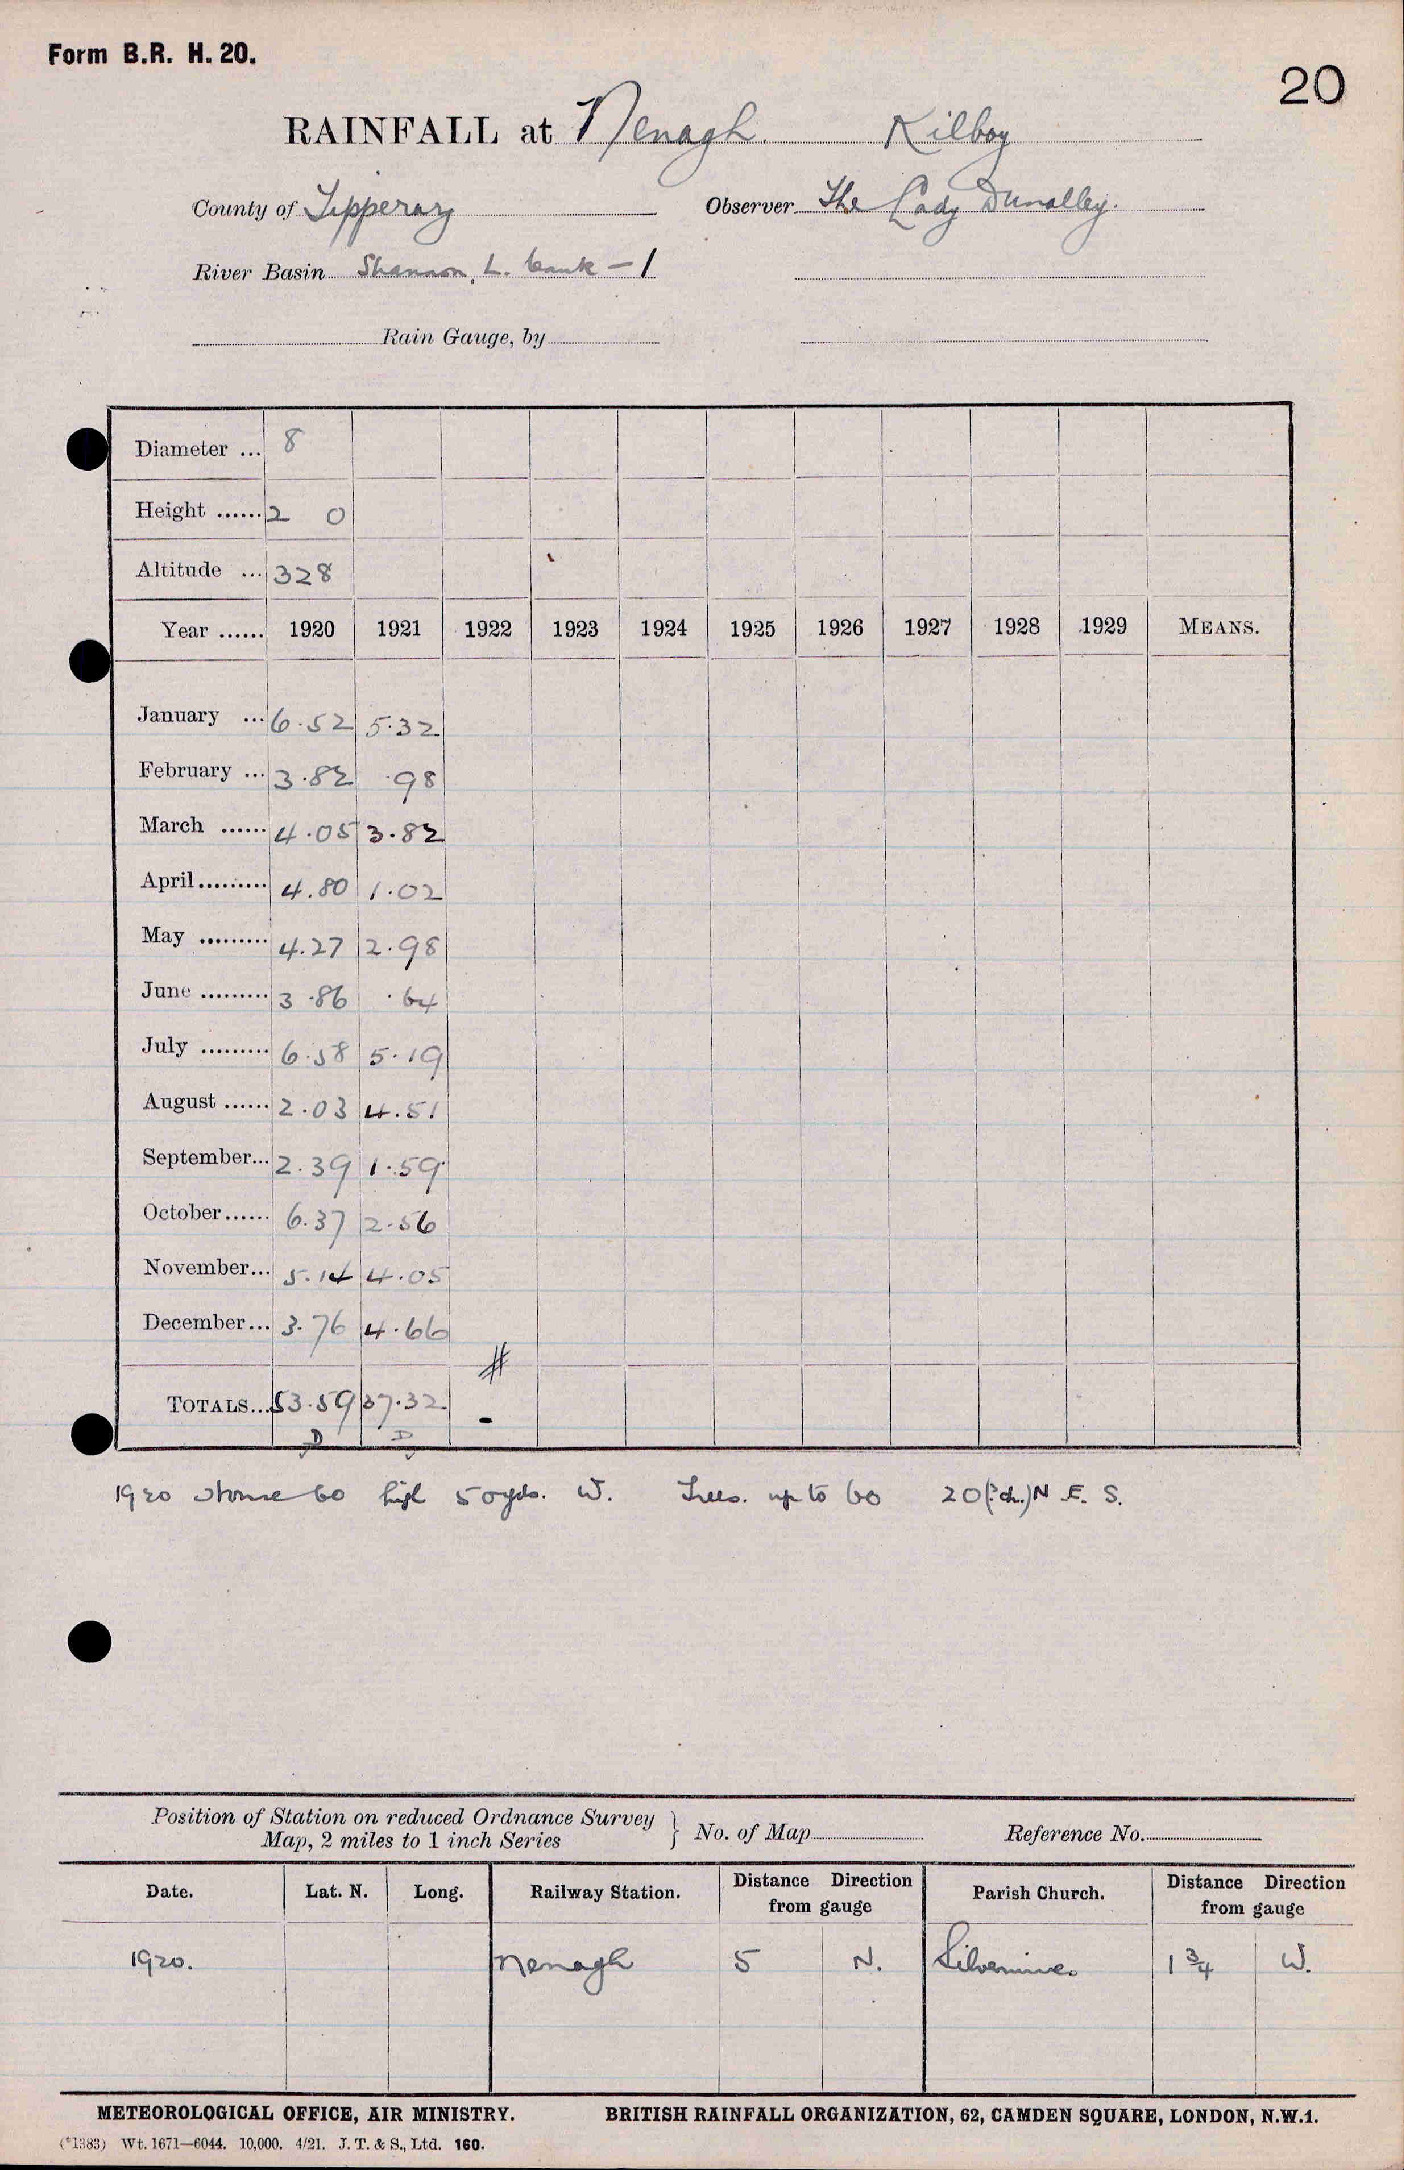 Form B.R. H. 20.
20
RAINFALL at Nenagh Kilboy
County of Tipperary Observer The Lady Dunalley.
River Basin Shannon, L. bank - 1
Rain Gauge, by
Diameter ... 8
Height ...... 2 0
Altitude ... 328
Year ...... 1920 1921 1922 1923 1924 1925 1926 1927 1928 1929 MEANS.
January ... 6.52 5.32
February ... 3.82 .98
March ...... 4.05 3.82
April ......... 4.80 1.02
May ......... 4.27 2.98
June ......... 3.86 .64
July ......... 6.58 5.19
August ...... 2.03 4.51
September... 2.39 1.59
October...... 6.37 2.56
November... 5.14 4.05
December... 3.76 4.66
#
TOTALS... 53.59 37.32 -
D D
1920 House 60 high 50 yds. W. Trees. up to 60 20 (?ch.) N. E. S.
Position of Station on reduced Ordnance Survey
Map, 2 miles to 1 inch Series } No. of Map Reference No.
Date. Lat. N. Long. Railway Station. Distance Direction from gauge Parish Church. Distance Direction from gauge
1920. Nenagh 5 N. Silvermines 1 3/4 W.
METEOROLOGICAL OFFICE, AIR MINISTRY. BRITISH RAINFALL ORGANIZATION, 62, CAMDEN SQUARE, LONDON, N.W.1.
(*1383) Wt. 1671—6044. 10,000. 4/21. J. T. & S., Ltd. 160.